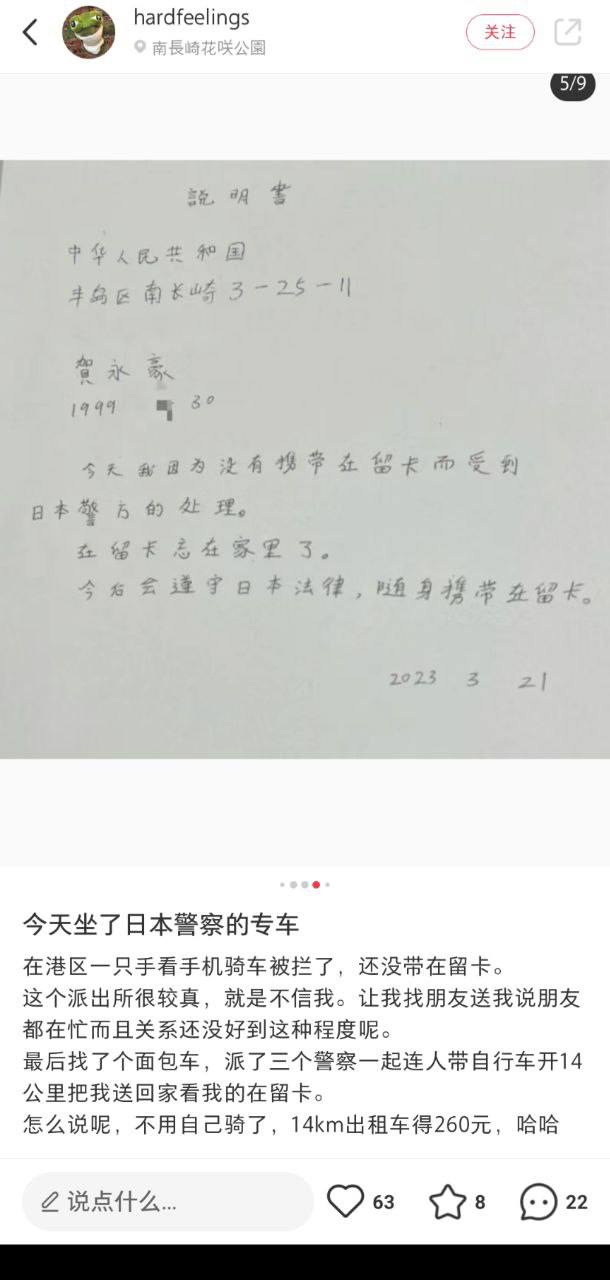 hardfeelings
南長崎花咲公園
关注
5/9
説明書
中华人民共和国
丰岛区南长崎3-25-11
賀永豪
1999 30
今天我因为没有携带在留卡而受到
日本警方的处理。
在留卡忘在家里了。
今后会遵守日本法律,随身携带在留卡。
2023 3 21
今天坐了日本警察的专车
在港区一只手看手机骑车被拦了，还没带在留卡。
这个派出所很较真，就是不信我。让我找朋友送我说朋友
都在忙而且关系还没好到这种程度呢。
最后找了个面包车，派了三个警察一起连人带自行车开14
公里把我送回家看我的在留卡。
怎么说呢，不用自己骑了，14km出租车得260元，哈哈
说点什么...
63
8
22